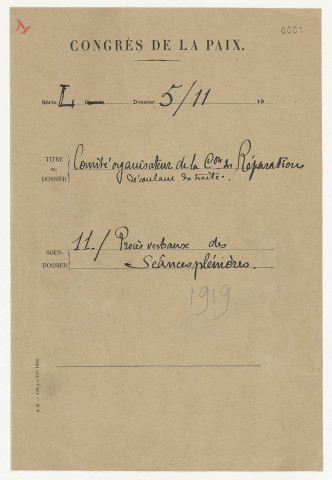 0001
CONGRÈS DE LA PAIX.
Série L Dossier 5/11 19
TITRE DU DOSSIER Comité organisateur de la Con des Réparations
découlant du traité.
SOUS-DOSSIER 11./ Procès verbaux des
Séances plénières.
1919